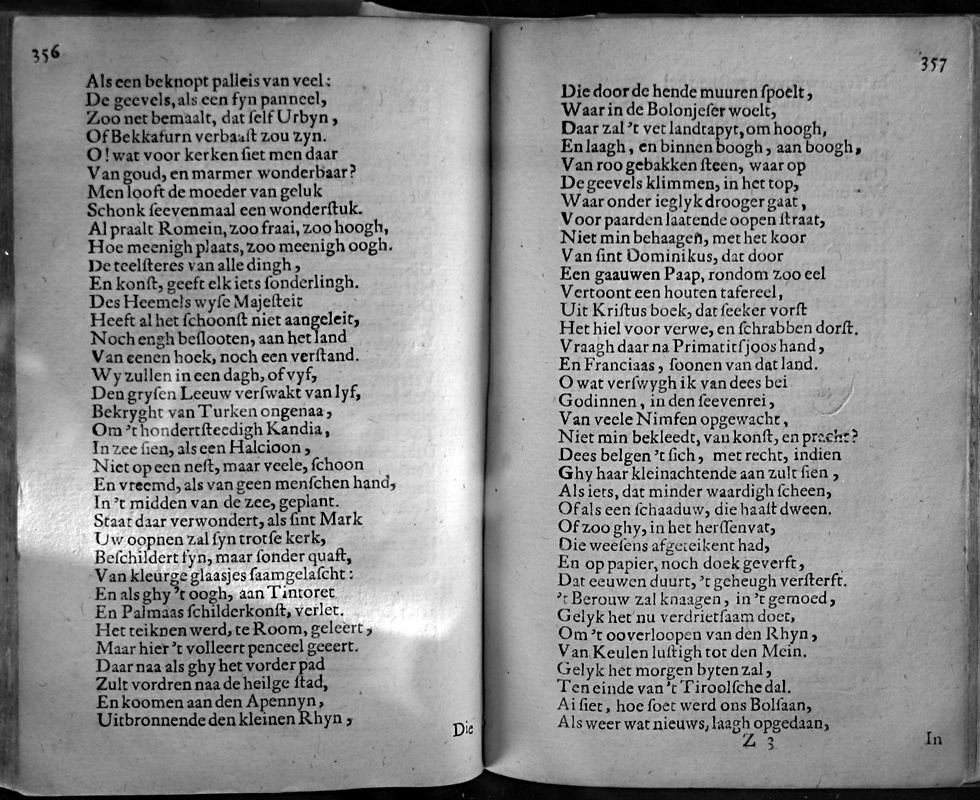 356
Als een beknopt palleis van veel:
De geevels, als een fyn panneel,
Zoo net bemaalt, dat ſelf Urbyn,
Of Bekkafurn verbaaſt zou zyn.
O! wat voor kerken ſiet men daar
Van goud, en marmer wonderbaar?
Men looft de moeder van geluk
Schonk ſeevenmaal een wonderſtuk.
Al praalt Romein, zoo fraai, zoo hoogh,
Hoe meenigh plaats, zoo meenigh oogh.
De teelſteres van alle dingh,
En konſt, geeft elk iets ſonderlingh.
Des Heemels wyſe Majeſteit
Heeft al het ſchoonſt niet aangeleit,
Noch engh beſlooten, aan het land
Van eenen hoek, noch een verſtand.
Wy zullen in een dagh, of vyf,
Den gryſen Leeuw verſwakt van lyf,
Bekryght van Turken ongenaa,
Om 't hondertſteedigh Kandia,
In zee ſien, als een Halcioon,
Niet op een neſt, maar veele, ſchoon
En vreemd, als van geen menſchen hand,
In 't midden van de zee, geplant.
Staat daar verwondert, als ſint Mark
Uw oopnen zal ſyn trotſe kerk,
Beſchildert fyn, maar ſonder quaſt,
Van kleurge glaasjes ſaamgelaſcht:
En als ghy 't oogh, aan Tintoret
En Palmaas ſchilderkonſt, verlet.
Het teiknen werd, te Room, geleert,
Maar hier 't volleert penceel geeert.
Daar naa als ghy het vorder pad
Zult vordren naa de heilge ſtad,
En koomen aan den Apennyn,
Uitbronnende den kleinen Rhyn,
Die
357
Die door de hende muuren ſpoelt,
Waar in de Bolonjeſer woelt,
Daar zal 't vet landtapyt, om hoogh,
En laagh, en binnen boogh, aan boogh,
Van roo gebakken ſteen, waar op
De geevels klimmen, in het top,
Waar onder ieglyk drooger gaat,
Voor paarden laatende oopen ſtraat,
Niet min behaagen, met het koor
Van ſint Dominikus, dat door
Een gaauwen Paap, rondom zoo eel
Vertoont een houten tafereel,
Uit Kriſtus boek, dat ſeeker vorſt
Het hiel voor verwe, en ſchrabben dorſt.
Vraagh daar na Primatitſjoos hand,
En Franciaas, ſoonen van dat land.
O wat verſwygh ik van dees bei
Godinnen, in den ſeevenrei,
Van veele Nimfen opgewacht,
Niet min bekleedt, van konſt, en pracht?
Dees belgen 't ſich, met recht, indien
Ghy haar kleinachtende aan zult ſien,
Als iets, dat minder waardigh ſcheen,
Of als een ſchaaduw, die haaſt dween.
Of zoo ghy, in het herſſenvat,
Die weeſens afgeteikent had,
En op papier, noch doek geverft,
Dat eeuwen duurt, 't geheugh verſterft.
't Berouw zal knaagen, in 't gemoed,
Gelyk het nu verdrietſaam doet,
Om 't ooverloopen van den Rhyn,
Van Keulen luſtigh tot den Mein.
Gelyk het morgen byten zal,
Ten einde van 't Tiroolſche dal.
Ai ſiet, hoe ſoet werd ons Bolſaan,
Als weer wat nieuws, laagh opgedaan,
Z 3
In